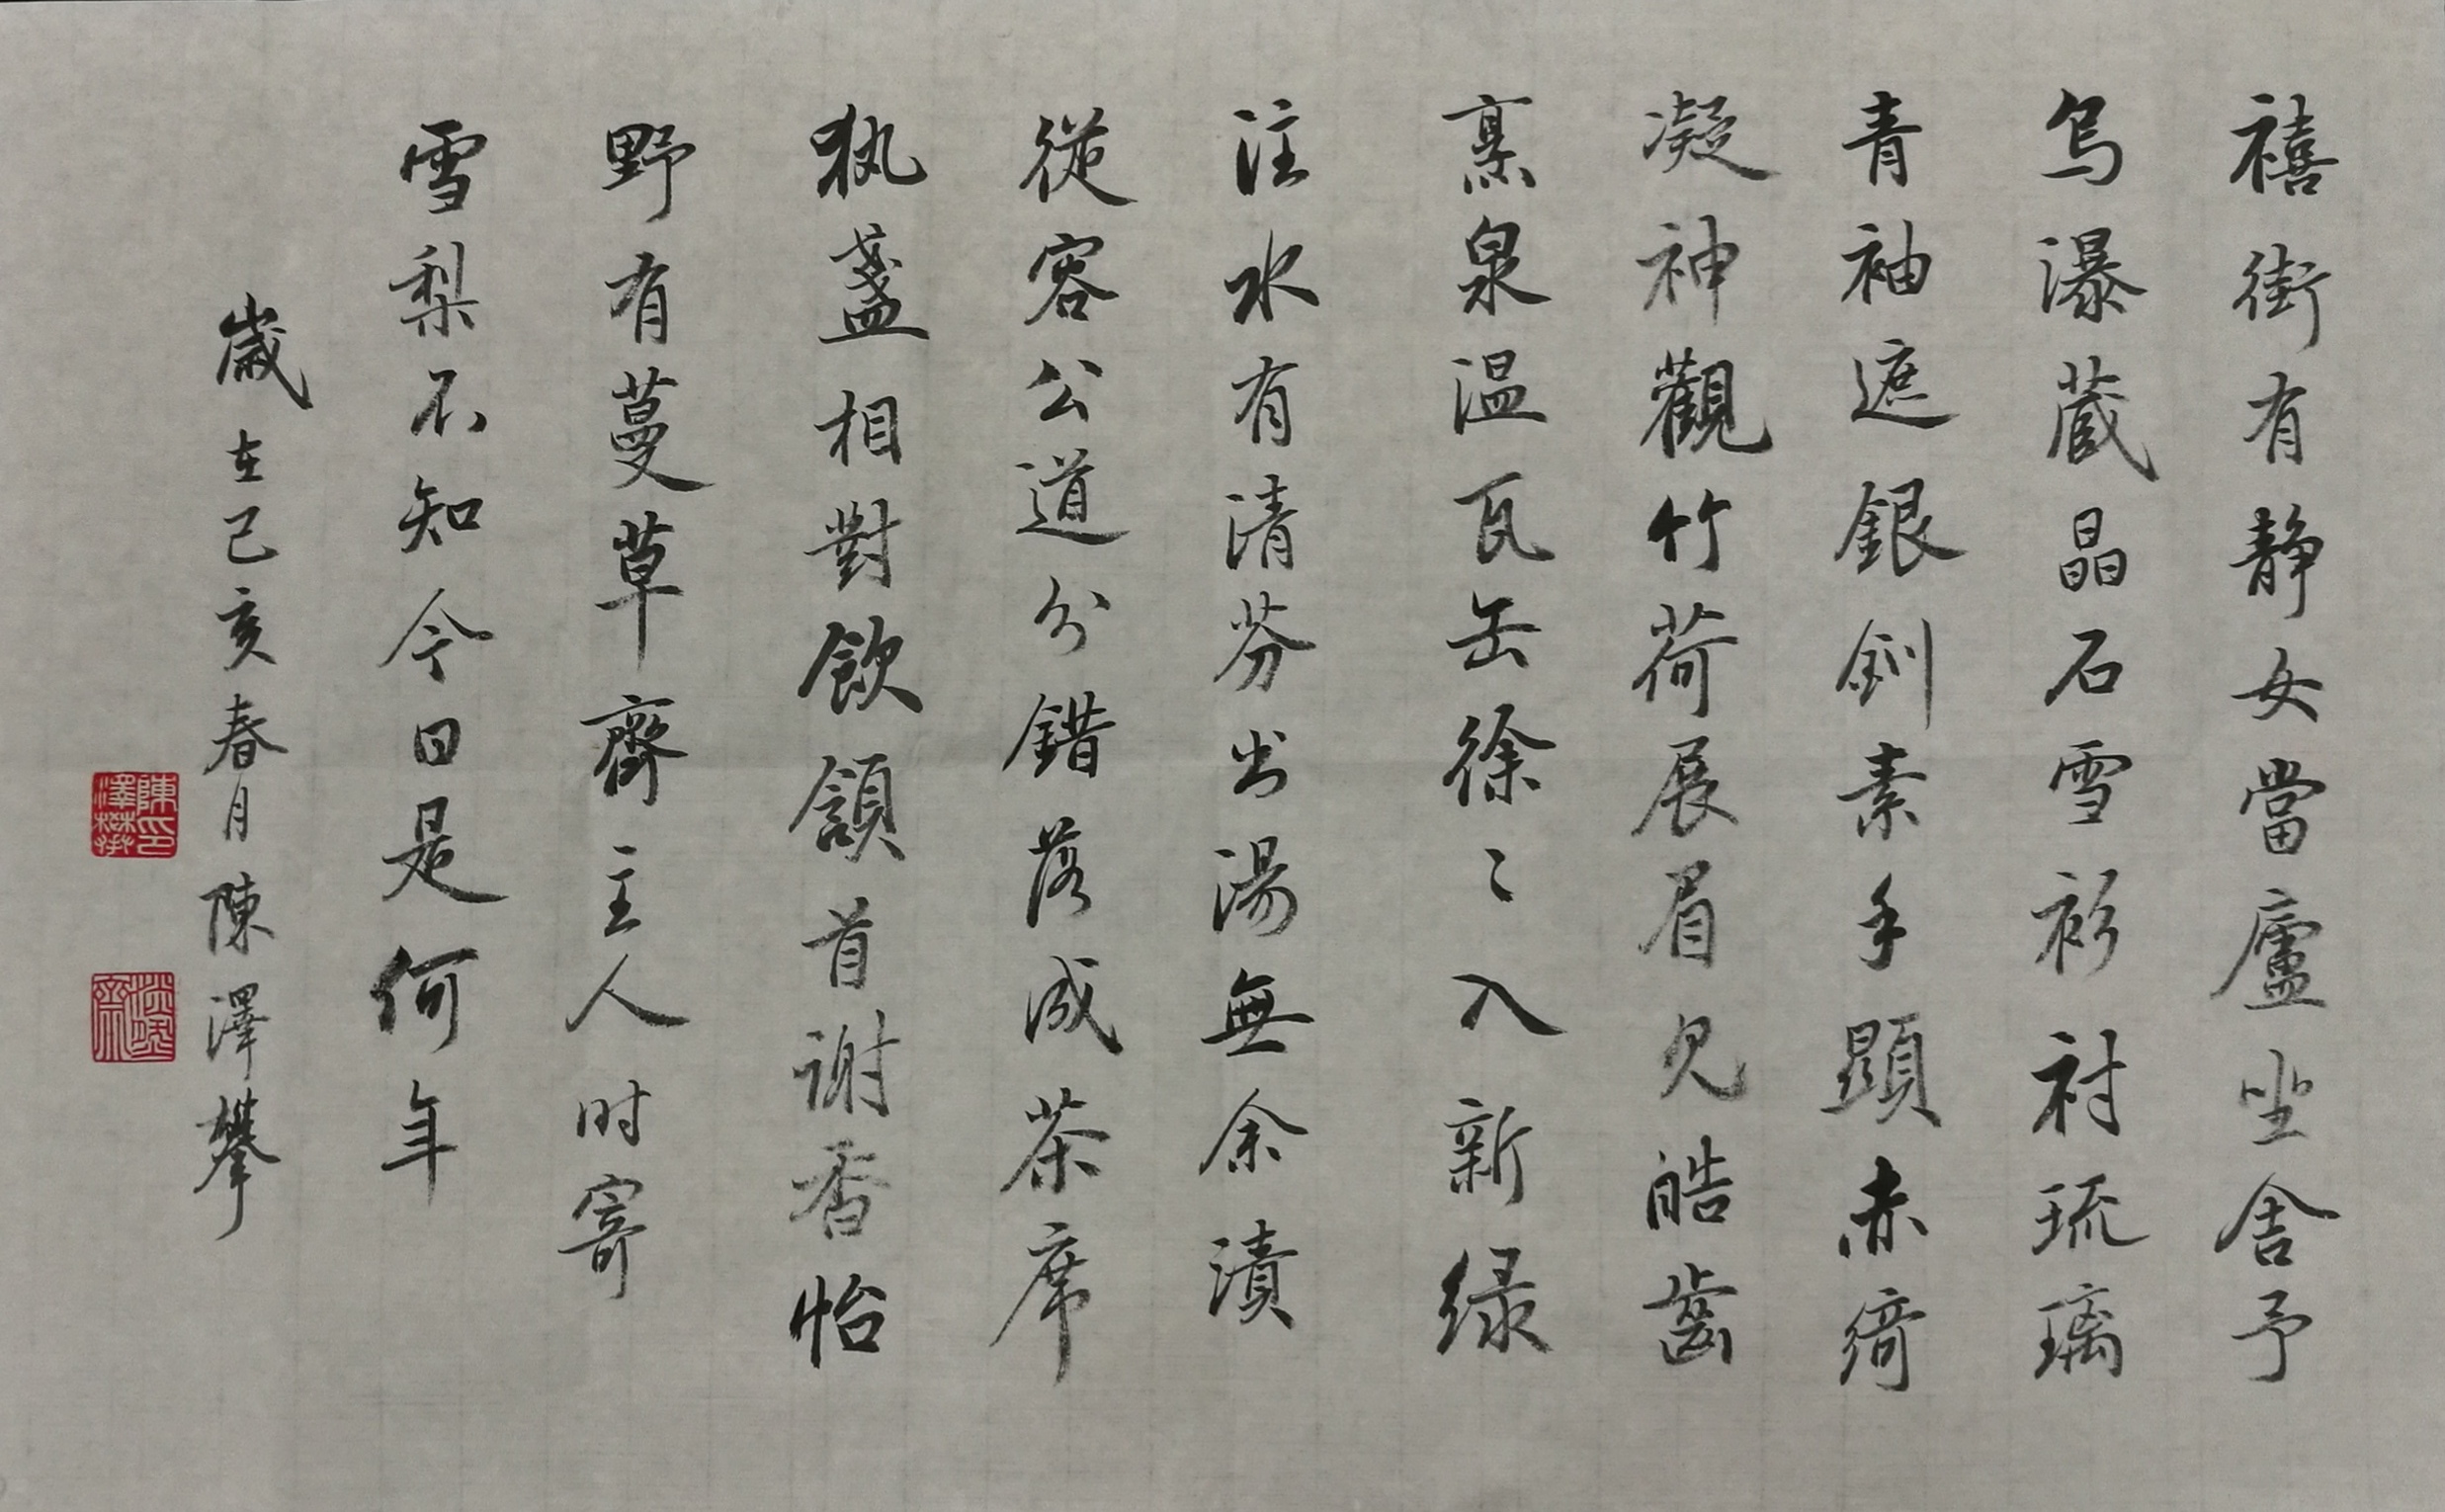 禧街有静女當廬坐舍予
烏瀑蔵晶石雪衫衬琉璃
青袖遮銀釧素手顕赤绮
凝神觀竹荷展眉见皓齒
烹泉温瓦缶徐〻入新绿
注水有清芬出湯無余漬
從容公道分錯落成茶席
執盞相對飲頷首谢香怡
野有蔓草齊主人时寄
雪梨不知今日是何年
歲在己亥春月陳澤攀
陳澤攀印